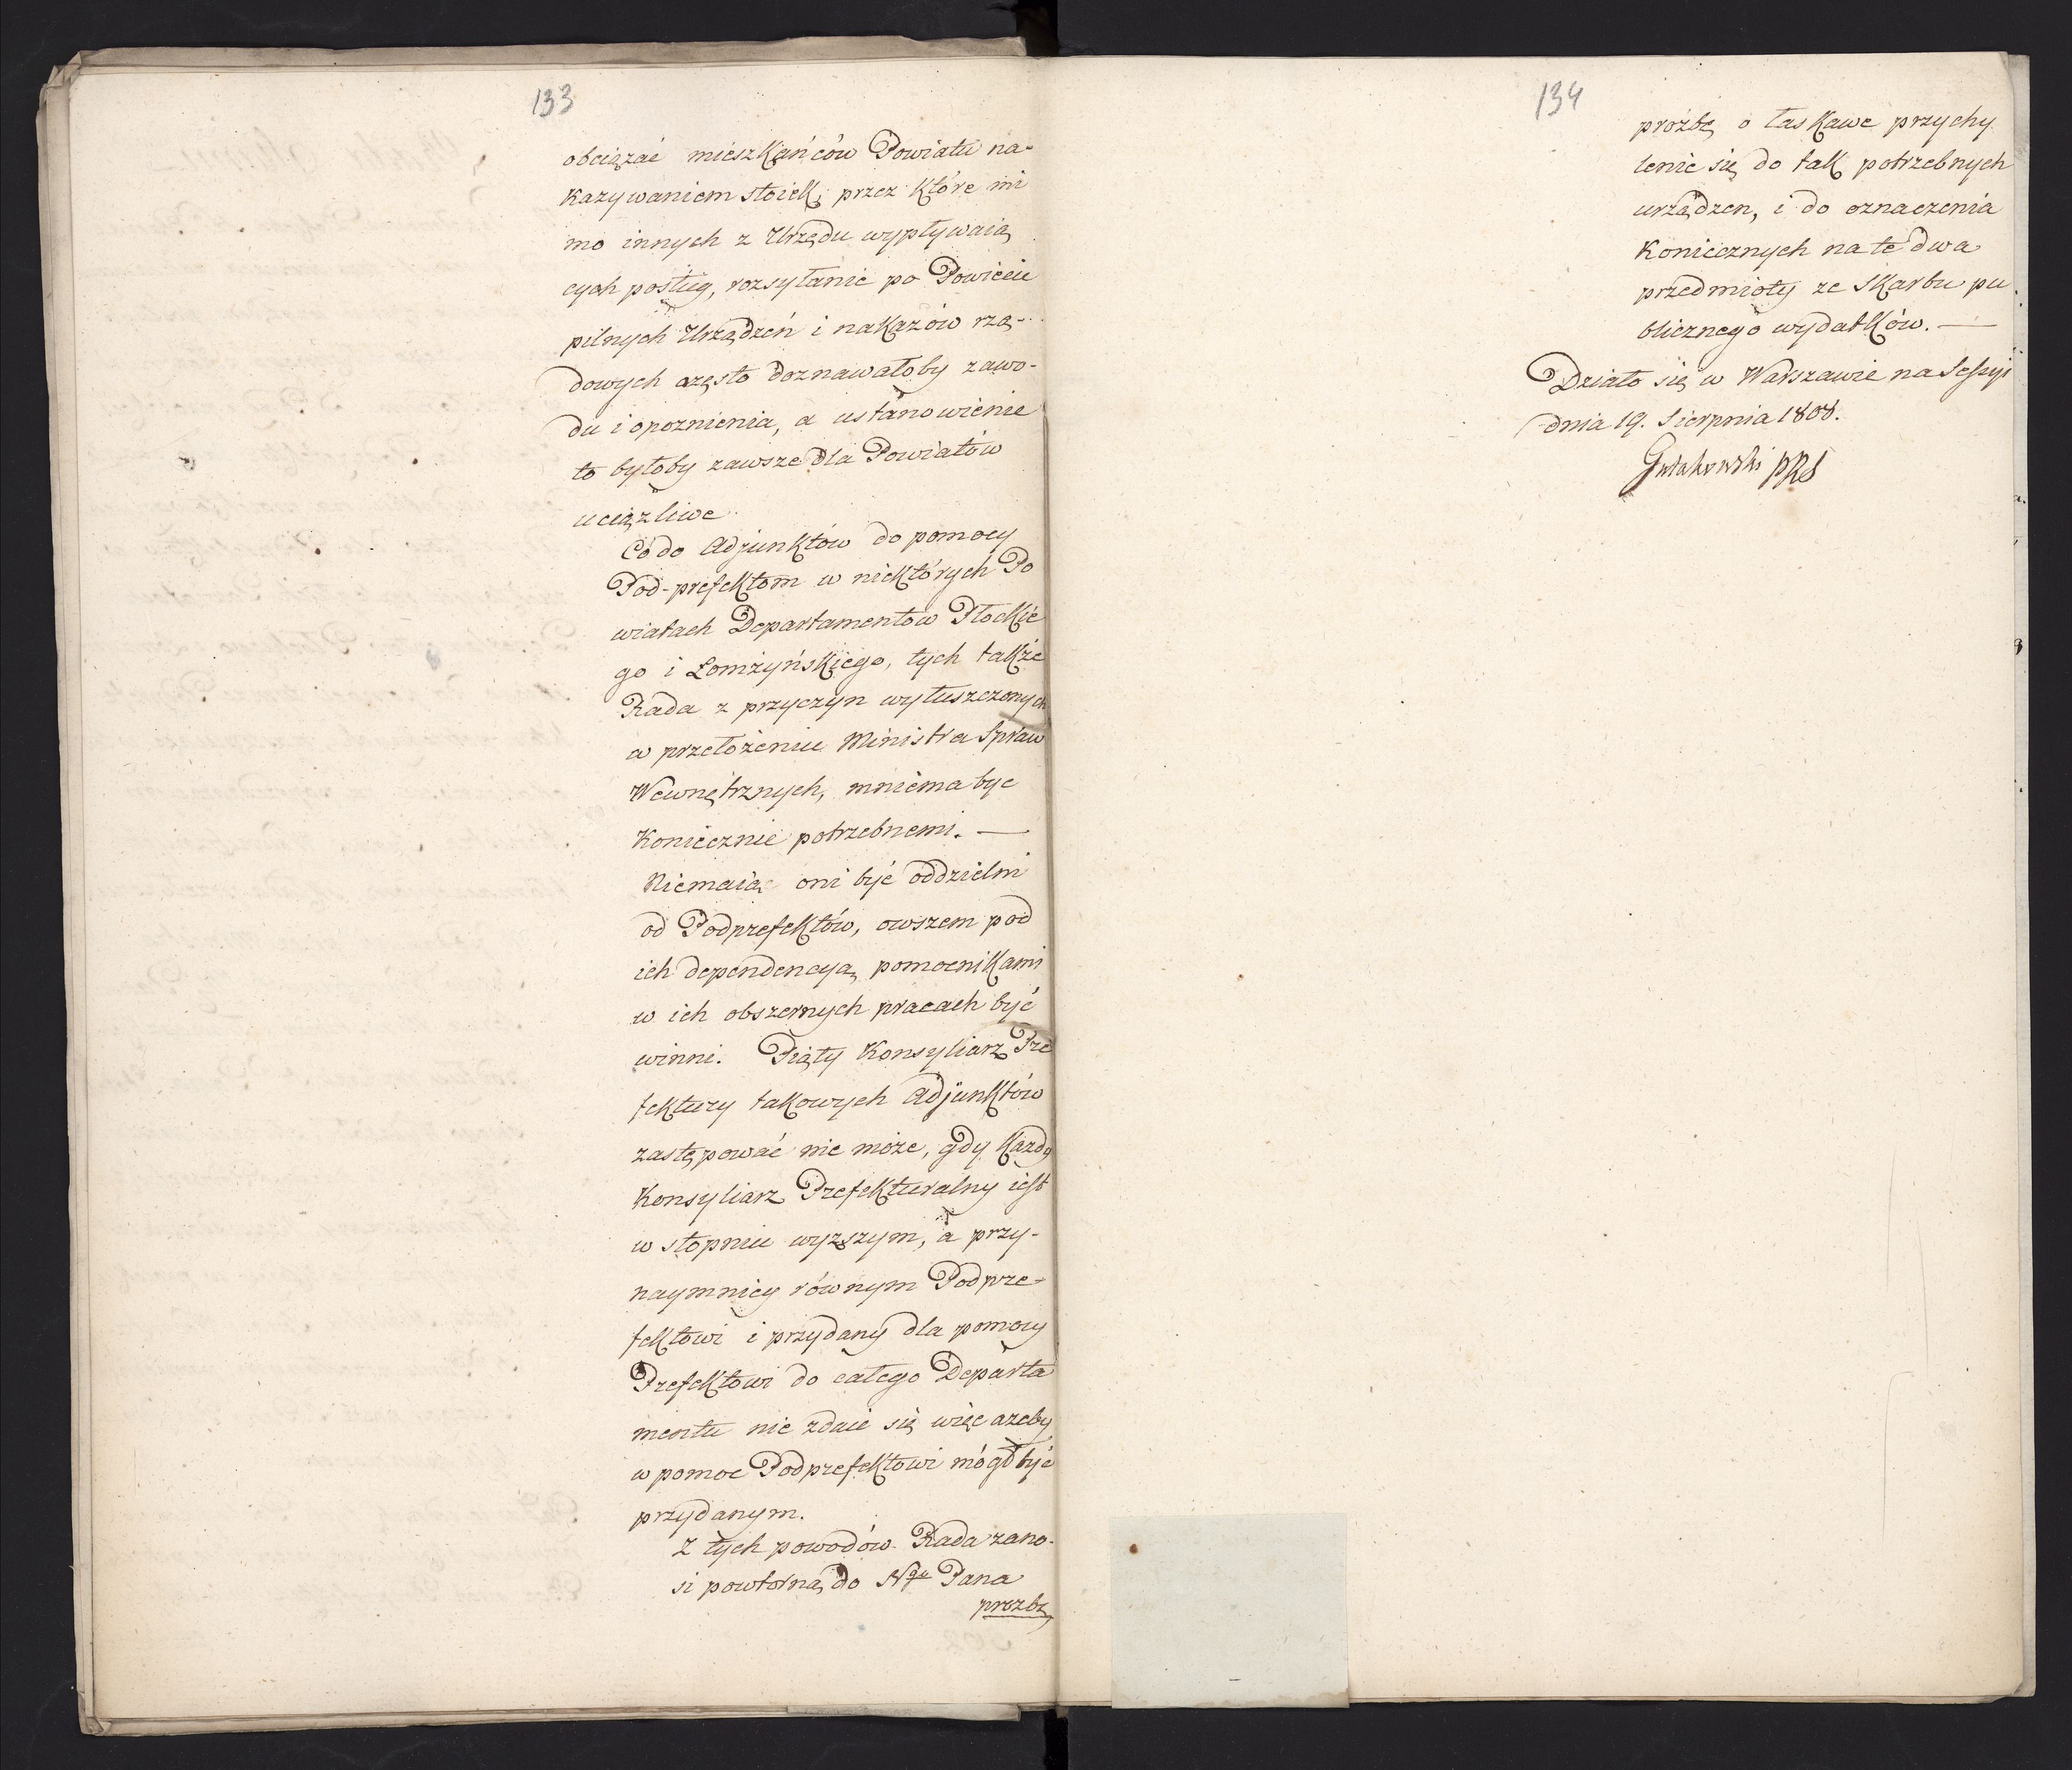 133
obciązać mieszkańców Powiatu na-
kazywaniem stoiek, przez które mi
mo innych z Urzędu wypływaią
cych posług, rozsyłanie po Powiecie
pilnych Urządzeń i nakazów rzą-
dowych często doznawałoby zawo-
du i opoznienia, a ustanowienie
to byłoby zawsze dla Powiatów
uciązliwe.
Co do Adjunktów do pomocy
Pod-prefektom w niektórych Po
wiatach Departamentów Płockie
go i Łomżyńskiego, tych także
Rada z przyczyn wyłuszczonych
w przełożeniu Ministra Spraw
Wewnętrznych, mniema byc
koniecznie potrzebnemi. —
Niemaią oni być oddzielni
od Podprefektów, owszem pod
ich dependencyą pomocnikami
w ich obszernych pracach być
winni. Piąty Konsyliarz Pre
fektury takowych Adjunktów
zastępować nie może, gdy każdy
Konsyliarz Prefekturalny iest
w stopniu wyzszym, a przy-
naymniey równym Podpre-
fektowi i przydany dla pomocy
Prefektowi do całego Departa
mentu nie zdaie się więc azeby
w pomoc Podprefektowi mógł być
przydanym.
Z tych powodów Rada zano-
si powtorną do Ngo Pana
prozbę
134
prożbę o łaskawe przychy
lenie się do tak potrzebnych
urządzen, i do oznaczenia
koniecznych na te dwa
przedmioty ze Skarbu pu
blicznego wydatków. —
Działo się w Warszawie na Sessyi
dnia 19. Sierpnia 1808.
Gutakowski PRS